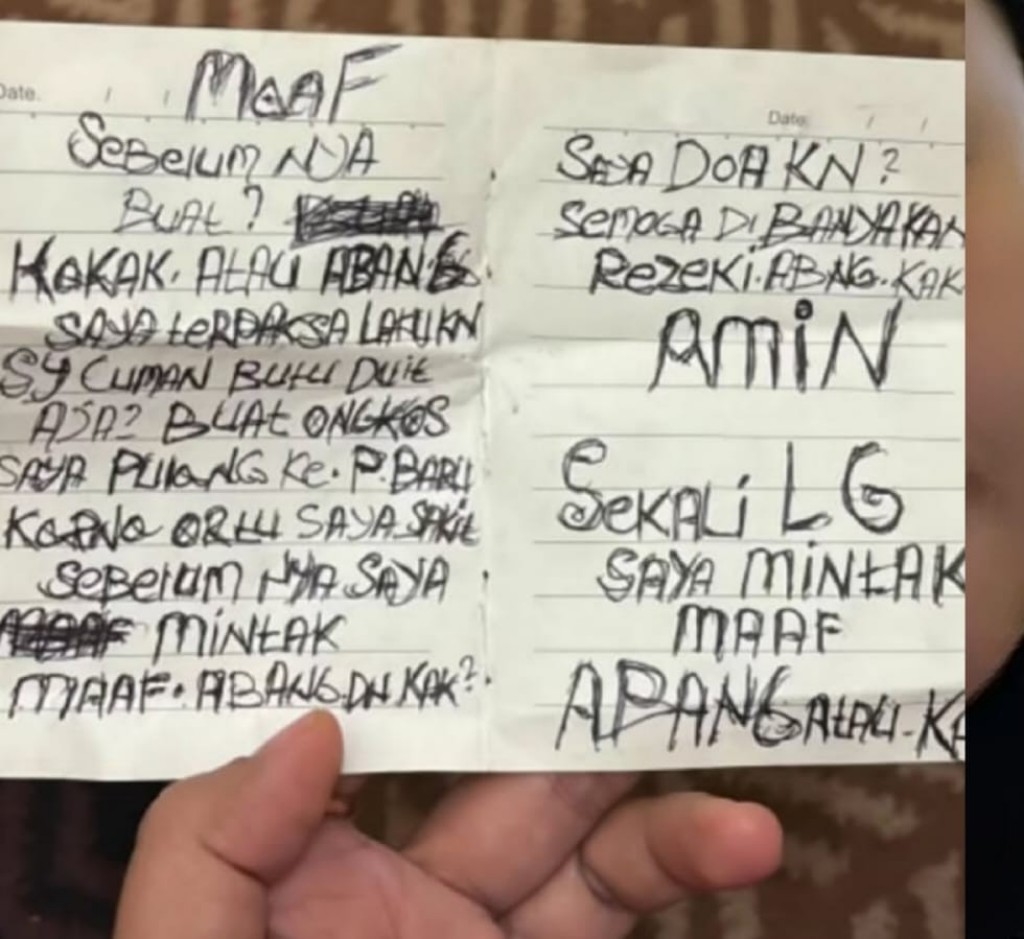 Date. / /
MAAF
SEBELUM NYA
BUAT?
KAKAK. ATAU ABANG
SAYA tERPAKSA LAKUKN
SY CUMAN BUtU DUIt
AJA? BUAT ONGKOS
SAYA PULANG KE. P. BARU
KARNA ORtU SAYA SAKit
SEBELUM NYA SAYA
MAAF MINtAK
MAAF. ABANG DN KAK?
Date: / /
SAYA DOA KN?
SEMOGA DI BANYAKAN
REZEKi. ABNG. KAK
AMiN
SEKALi LG
SAYA MiNtAK
MAAF
ABANG AtAU-KA